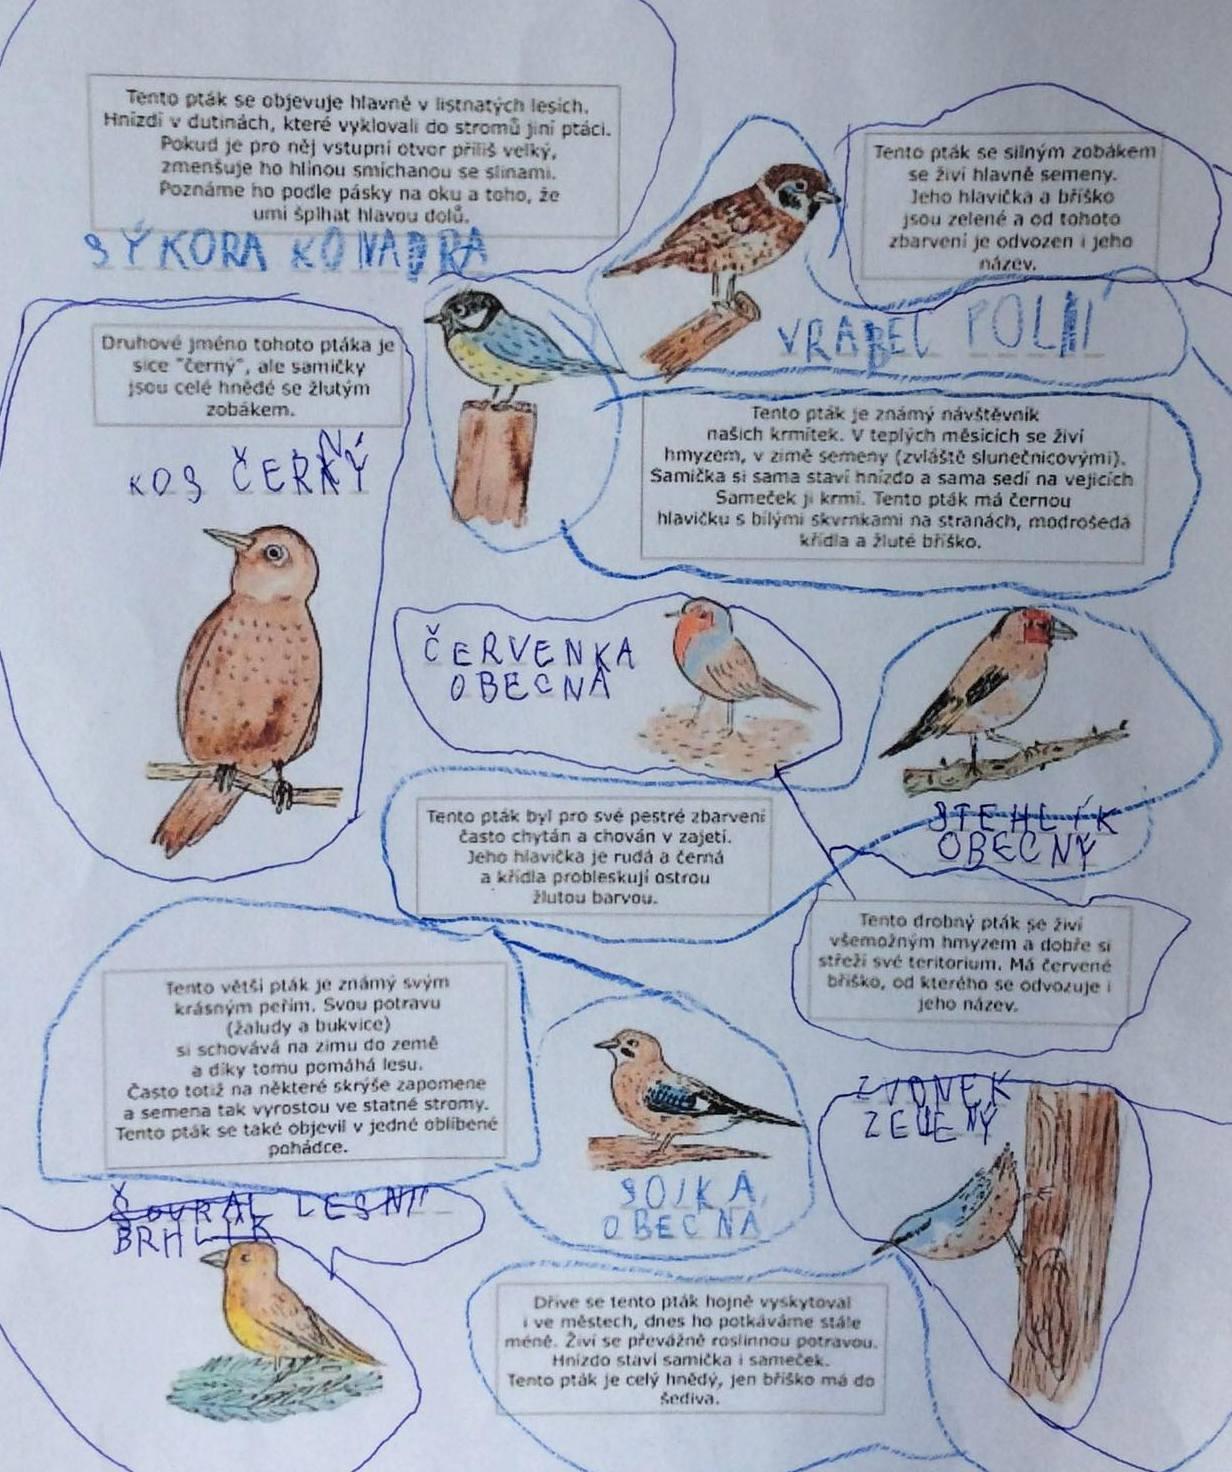 Tento pták se objevuje hlavně v listnatých lesích.
Hnízdí v dutinách, které vyklovali do stromů jiní ptáci.
Pokud je pro něj vstupní otvor příliš velký,
zmenšuje ho hlínou smíchanou se slinami.
Poznáme ho podle pásky na oku a toho, že
umí šplhat hlavou dolů.
SÝKORA KONADRA
Tento pták se silným zobákem
se živí hlavně semeny.
Jeho hlavička a bříško
jsou zelené a od tohoto
zbarvení je odvozen i jeho
název.
VRABEC POLNÍ
Druhové jméno tohoto ptáka je
sice "černý", ale samičky
jsou celé hnědé se žlutým
zobákem.
KOS ČERNÝ
Tento pták je známý návštěvník
našich krmítek. V teplých měsících se živí
hmyzem, v zimě semeny (zvláště slunečnicovými).
Samička si sama staví hnízdo a sama sedí na vejcích
Sameček ji krmí. Tento pták má černou
hlavičku s bílými skvrnkami na stranách, modrošedá
křídla a žluté bříško.
ČERVENKA
OBECNÁ
Tento pták byl pro své pestré zbarvení
často chytán a chován v zajetí.
Jeho hlavička je rudá a černá
a křídla probleskují ostrou
žlutou barvou.
STEHLÍK
OBECNÝ
Tento drobný pták se živí
všemožným hmyzem a dobře si
střeží své teritorium. Má červené
bříško, od kterého se odvozuje i
jeho název.
Tento větší pták je známý svým
krásným peřím. Svou potravu
(žaludy a bukvice)
si schovává na zimu do země
a díky tomu pomáhá lesu.
Často totiž na některé skrýše zapomene
a semena tak vyrostou ve statné stromy.
Tento pták se také objevil v jedné oblíbené
pohádce.
ZVONEK
ZELENÝ
SOJKA
OBECNÁ
LESNÍ
BRHLÍK
Dříve se tento pták hojně vyskytoval
i ve městech, dnes ho potkáváme stále
méně. Živí se převážně roslinnou potravou.
Hnízdo staví samička i sameček.
Tento pták je celý hnědý, jen bříško má do
šediva.